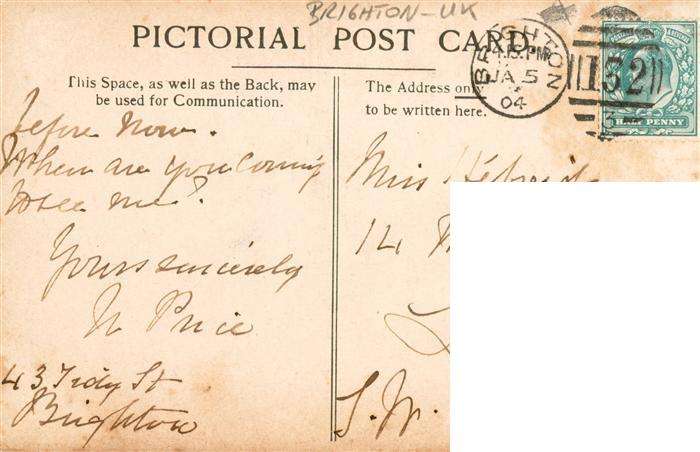 BRIGHTON-UK
PICTORIAL POST CARD.
This Space, as well as the Back, may
be used for Communication.
The Address only
to be written here.
BRIGHTON
4.15.PM
JA 5
04
152
HALF PENNY
before now.
When are you coming
to see me?
Yours sincerely
Price
43 Tidy St
Brighton
Miss
14
S.W.